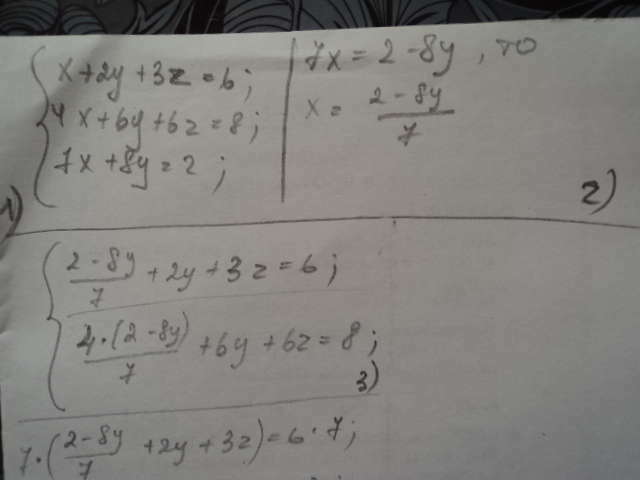 x+2y+3z=6;
4x+6y+6z=8;
7x+8y=2;
1)
7x=2-8y, то
x= (2-8y)/7
2)
(2-8y)/7 +2y+3z=6;
4·(2-8y)/7 +6y+6z=8;
3)
7·((2-8y)/7 +2y+3z)=6·7;